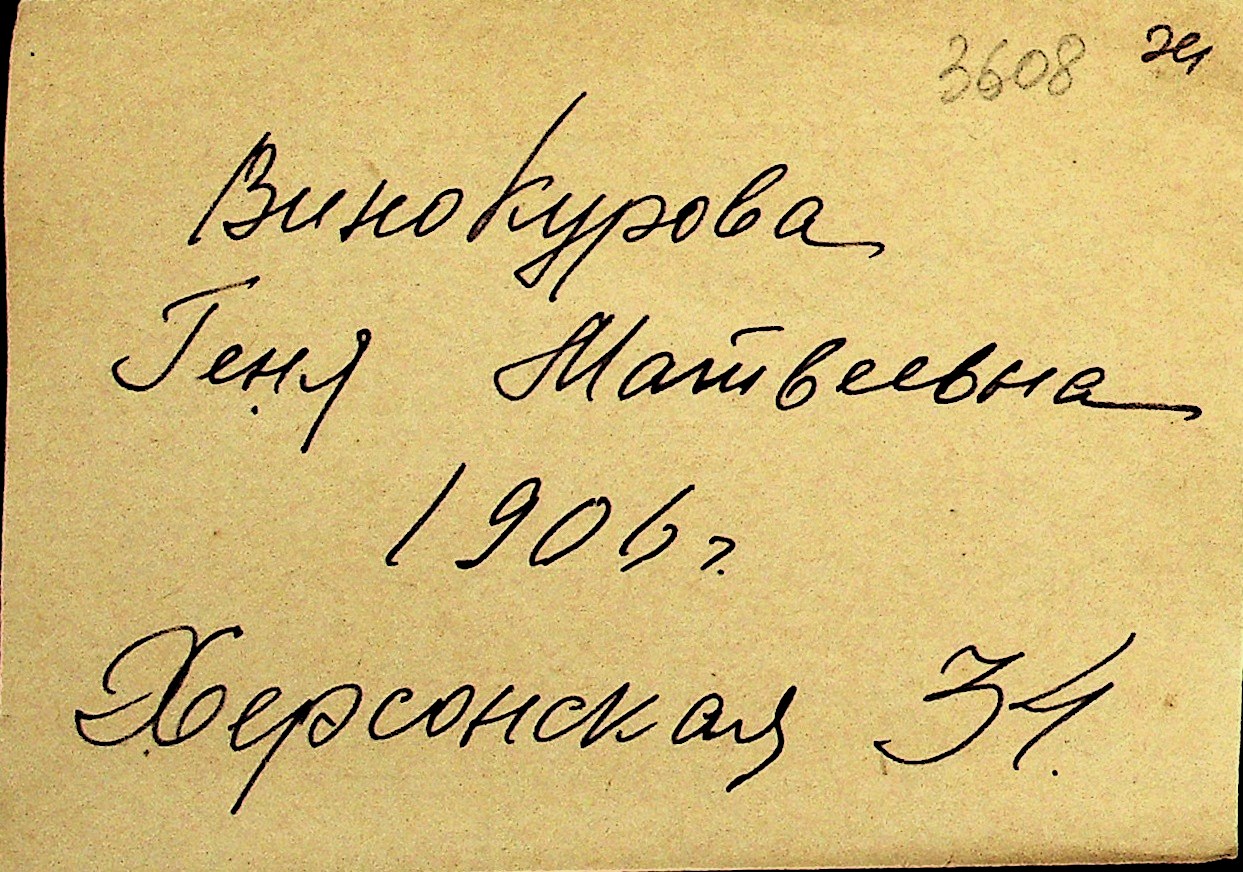 3608
Винокурова
Геня Матвеевна
1906 г.
Херсонская 34.